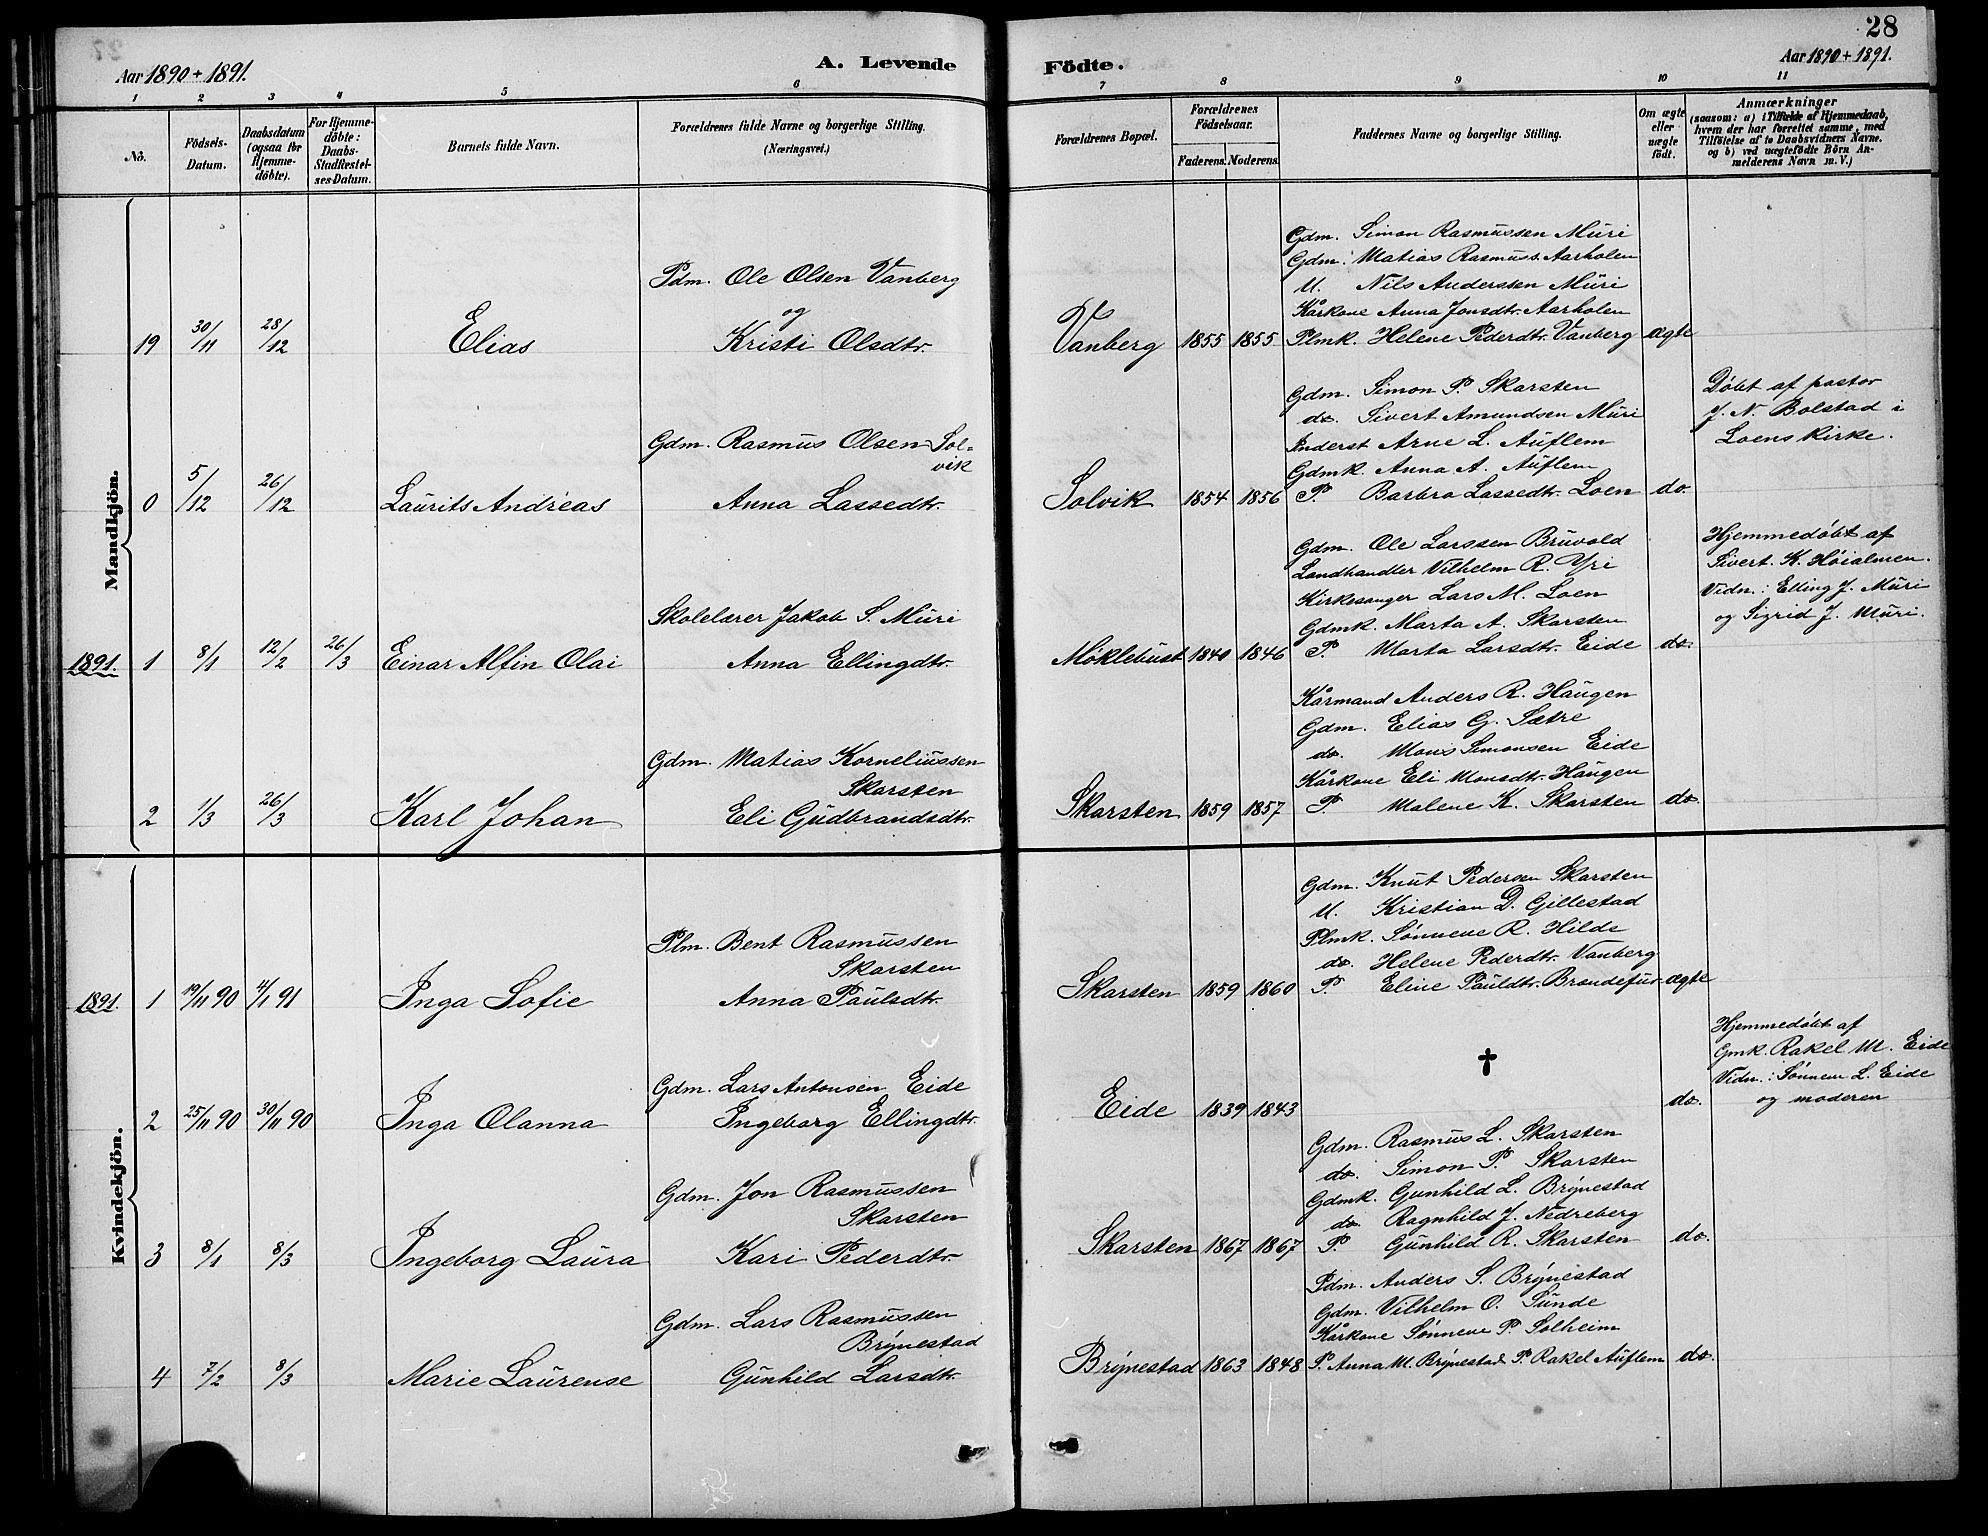 28
Aar 1890 + 1891.
A. Levende
Födte.
Aar 1890 + 1891.
1 2 3 4 5 6 7 8 9 10 11
No.
Födsels-Datum.
Daabsdatum (ogsaa for Hjemme-döbte).
For Hjemme-döbte: Daabs-Stadfæstel-ses-Datum.
Barnets fulde Navn.
Forældrenes fulde Navne og borgerlige Stilling.
(Næringsvei.)
Forældrenes Bopæl.
Forældrenes Födselsaar.
Faderens. Moderens.
Faddernes Navne og borgerlige Stilling.
Om ægte eller uægte födt.
Anmærkninger
(saasom: a) i Tilfælde af Hjemmedaab, hvem der har forrettet samme, med Tilföielse af to Daabsvidners Navne. og b) ved uægtefödte Börn An-melderens Navn m. V.)
Mandkjön.
Gdm. Simon Rasmussen Müri
Gdm. Matias Rasmuss. Aarholen
Pdm. Ole Olsen Vanberg
U. Nils Anderssen Müri
og
Kårkone Anna Jonsdtr. Aarholen
19 30/11 28/12 Elias Kristi Olsdtr. Vanberg 1855 1855 Plmk. Helene Pederdtr. Vanberg ægte
Gdm. Simon P. Skarsten
Döbt af pastor
do. Sivert Amundsen Müri
J. N. Bolstad i
Gdm. Rasmus Olsen Sol-
vik
Inderst Arne L. Auflem
Loens kirke.
Gdmk. Anna A. Auflem
0 5/12 26/12 Laurits Andreas Anna Lassedtr. Solvik 1854 1856 P. Barbra Lassedtr. Loen do.
Gdm. Ole Larssen Bruvold
Hjemmedöbt af
Landhandler Vilhelm R. Yri
Sivert. K. Höialmen.
Kirkesanger Lars M. Loen
Vidn.: Elling J. Müri
Skolelærer Jakob S. Müri
Gdmk. Marta A. Skarsten
og Sigrid J. Müri.
1891. 1 8/1 12/2 26/3 Einar Alfin Olai Anna Ellingdtr. Möklebust 1840 1846 P. Marta Larsdtr. Eide do.
Kårmand Anders R. Haugen
Gdm. Elias G. Sætre
Gdm. Matias Korneliussen
Skarsten
do. Mons Simonsen Eide
Kårkone Eli Monsdtr. Haugen
2 1/3 26/3 Karl Johan Eli Gudbrandsdtr. Skarsten 1859 1857 P. Malene K. Skarsten do.
Kvindekjön.
Gdm. Knut Pedersen Skarsten
U. Kristian D. Gillestad
Plm. Bent Rasmussen
Skarsten
Plmk. Sönneve R. Hilde
do. Helene Pederdtr. Vanberg
1891. 1 19/11 90 4/1 91 Inga Sofie Anna Paulsdtr. Skarsten 1859 1860 P. Eline Pauldtr. Brandefur ægte
Hjemmedöbt af
Gmk. Rakel M. Eide
Gdm. Lars Antonsen Eide
✝
Vidn.: Sönneve L. Eide
og moderen
2 25/11 90 30/11 90 Inga Olanna Ingeborg Ellingdtr. Eide 1839 1843 do.
Gdm. Rasmus L. Skarsten
do. Simon P. Skarsten
Gdm. Jon Rasmussen
Skarsten
Gdmk. Gunhild L. Brÿnestad
do. Ragnhild J. Nedreberg
3 8/1 8/3 Ingeborg Laura Kari Pederdtr. Skarsten 1867 1867 P. Gunhild R. Skarsten do.
Pdm. Anders S. Brÿnestad
Gdm. Vilhelm O. Sunde
Gdm. Lars Rasmussen
Brÿnestad
Kårkone Sönneve P. Solheim
4 7/2 8/3 Marie Laurense Gunhild Larsdtr. Brÿnestad 1863 1848 P. Anna M. Brÿnestad P. Rakel Auflem do.